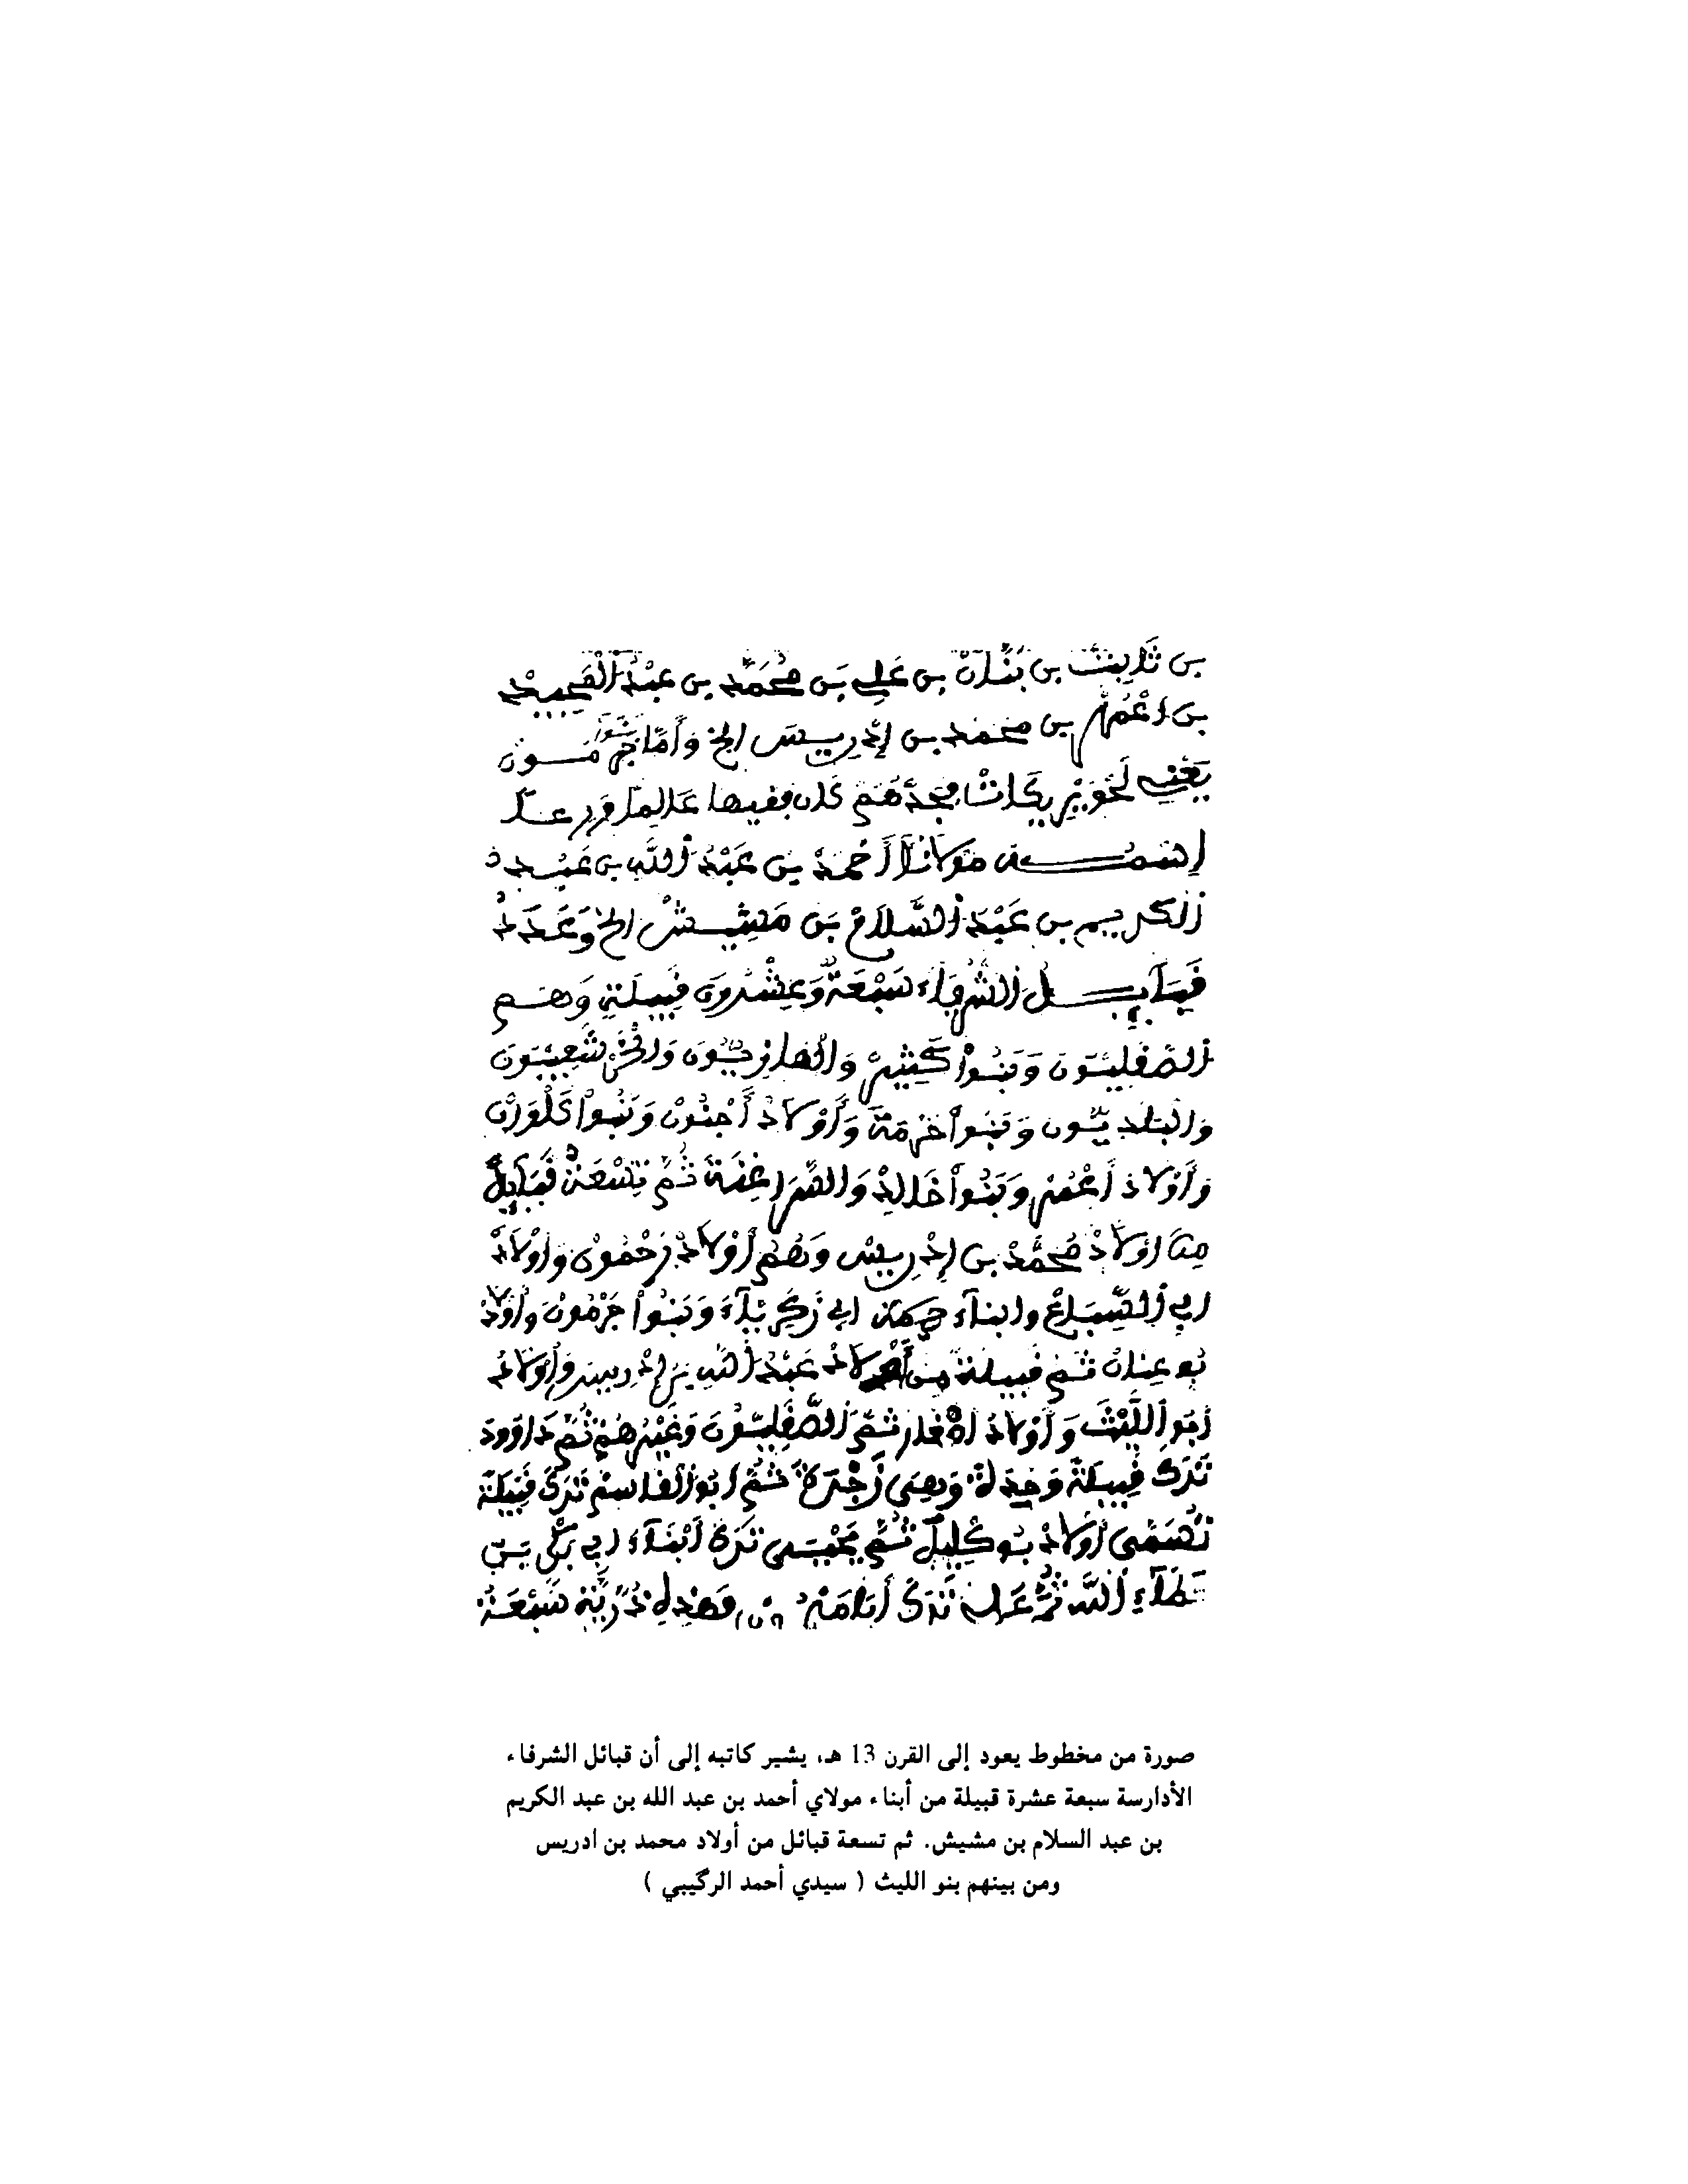 بن ثابت بن بن علي بن محمد بن عبد
بن بن محمد بن إدريس الخ وأما
يعني جدهم كان فقيها عالما
إسمه مولانا أحمد بن عبد الله بن عبد
الكريم بن عبد السلام بن مشيش الخ وعدد
قبايل الشرفاء سبعة وعشرون قبيلة وهم
الصقليون وبنوا كثير
وبنوا وأولاد أجنون وبنوا
وأولاد وبنوا خالد ثم تسعة قبايل
من اولاد محمد بن إدريس وهم أولاد رحمون وأولاد
ابي السباع وابناء ابي زكرياء وبنوا جرمون وأولاد
بو عنان ثم قبيلة من عبد الله بن إدريس وأولاد
أبو الليث وأولاد ثم الصقليون وغيرهم ثم داوود
ترك قبيلة وحدة وهي ثم ابو القاسم ترك قبيلة
تسمى أولاد ثم يحيى ترك أبناء ابي بكر بن
عطاء الله ثم ترك ذرية سبعة
صورة من مخطوط يعود إلى القرن 13 هـ، يشير كاتبه إلى أن قبائل الشرفاء
الأدارسة سبعة عشرة قبيلة من أبناء مولاي أحمد بن عبد الله بن عبد الكريم
بن عبد السلام بن مشيش. ثم تسعة قبائل من أولاد محمد بن ادريس
ومن بينهم بنو الليث ( سيدي أحمد الرگيبي )